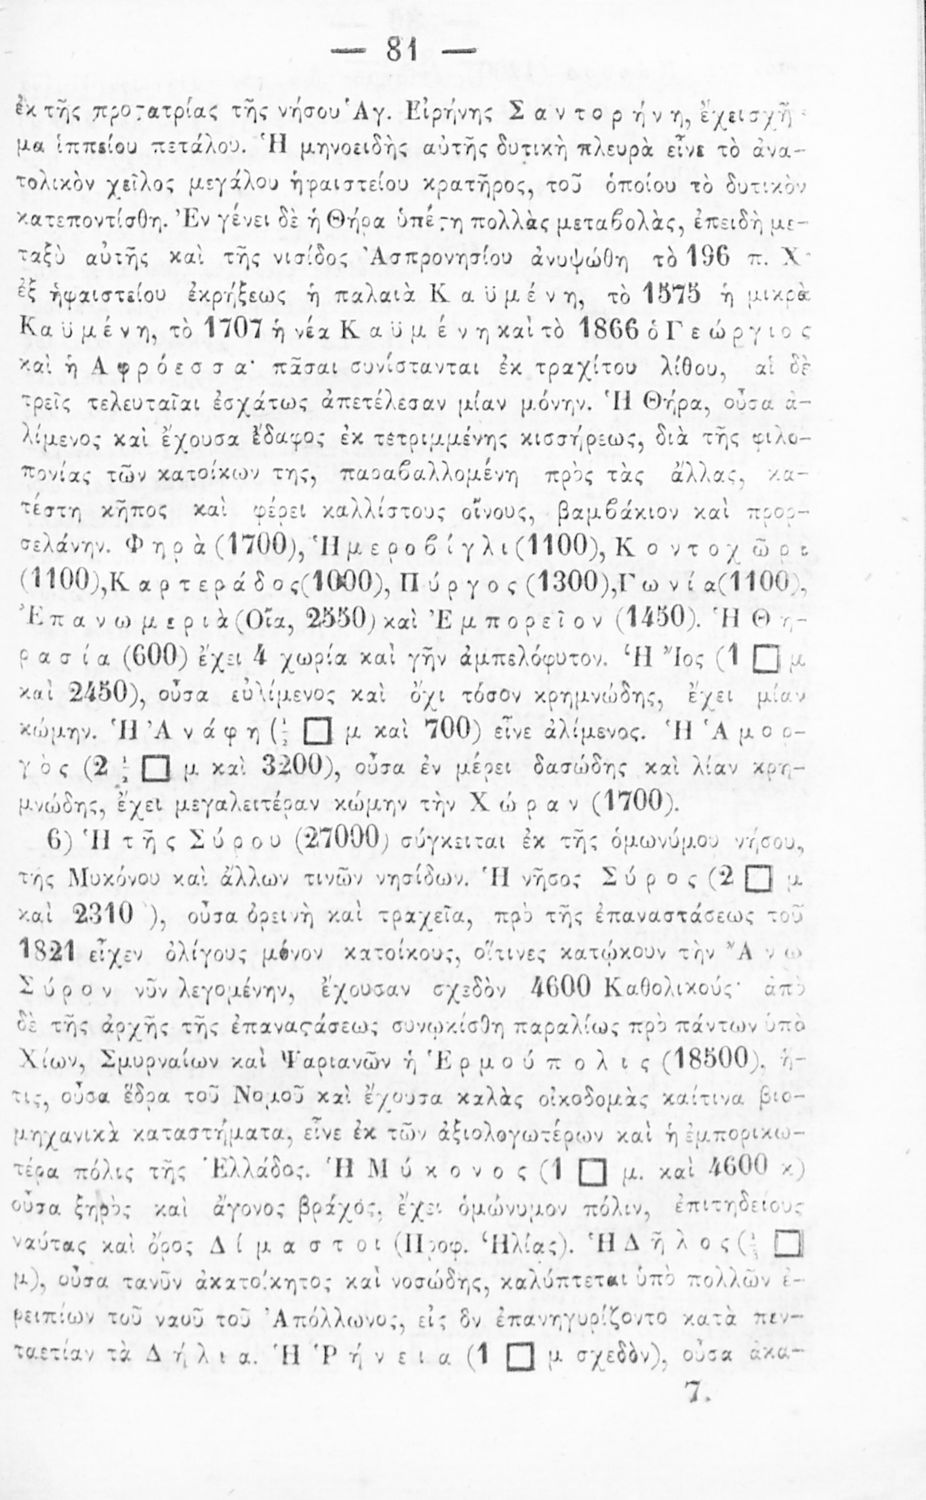 — 81 —
ἐκ τῆς προστατρίας τῆς νήσου Ἁγ. Εἰρήνης Σαντορήνη, ἔχει σχῆ-
μα ἱππείου πετάλου. Ἡ μηνοειδὴς αὐτῆς δυτικὴ πλευρὰ εἶνε τὸ ἀνα-
τολικὸν χεῖλος μεγάλου ἡφαιστείου κρατῆρος, τοῦ ὁποίου τὸ δυτικὸν
κατεποντίσθη. Ἐν γένει δὲ ἡ Θήρα ὑπέστη πολλὰς μεταβολὰς, ἐπειδὴ με-
ταξὺ αὐτῆς καὶ τῆς νισίδος Ἀσπρονησίου ἀνυψώθη τὸ 196 π. Χ·
ἐξ ἡφαιστείου ἐκρήξεως ἡ παλαιὰ Καϋμένη, τὸ 1575 ἡ μικρὰ
Καϋμένη, τὸ 1707 ἡ νέα Καϋμένη καὶ τὸ 1866 ὁ Γεώργιος
καὶ ἡ Αφρόεσσα· πᾶσαι συνίστανται ἐκ τραχίτου λίθου, αἱ δὲ
τρεῖς τελευταῖαι ἐσχάτως ἀπετέλεσαν μίαν μόνην. Ἡ Θήρα, οὖσα ἀ-
λίμενος καὶ ἔχουσα ἔδαφος ἐκ τετριμμένης κισσήρεως, διὰ τῆς φιλο-
πονίας τῶν κατοίκων της, παραβαλλομένη πρὸς τὰς ἄλλας, κα-
τέστη κῆπος καὶ φέρει καλλίστους οἴνους, βαμβάκιον καὶ πορσ-
σελάνην. Φηρὰ (1700), Ἡμεροβίγλι (1100), Κοντοχῶρι
(1100), Καρτεράδος (1000), Πύργος (1300), Γωνία (1100),
Ἐπανωμεριὰ (Οἴα, 2550) καὶ Ἐμπορεῖον (1450). Ἡ Θη-
ρασία (600) ἔχει 4 χωρία καὶ γῆν ἀμπελόφυτον. Ἡ Ἴος (1 □ μ
καὶ 2450), οὖσα εὐλίμενος καὶ ὄχι τόσον κρημνώδης, ἔχει μίαν
κώμην. Ἡ Ἀνάφη (½ □ μ καὶ 700) εἶνε ἀλίμενος. Ἡ Ἀμορ-
γὸς (2 ½ □ μ καὶ 3200), οὖσα ἐν μέρει δασώδης καὶ λίαν κρη-
μνώδης, ἔχει μεγαλειτέραν κώμην τὴν Χώραν (1700).
6) Ἡ τῆς Σύρου (27000) σύγκειται ἐκ τῆς ὁμωνύμου νήσου,
τῆς Μυκόνου καὶ ἄλλων τινῶν νησίδων. Ἡ νῆσος Σύρος (2 □ μ
καὶ 2310 ), οὖσα ὀρεινὴ καὶ τραχεῖα, πρὸ τῆς ἐπαναστάσεως τοῦ
1821 εἶχεν ὀλίγους μόνον κατοίκους, οἵτινες κατῴκουν τὴν Ἄνω
Σύρον νῦν λεγομένην, ἔχουσαν σχεδὸν 4600 Καθολικούς· ἀπὸ
δὲ τῆς ἀρχῆς τῆς ἐπαναςάσεως συνῳκίσθη παραλίως πρὸ πάντων ὑπὸ
Χίων, Σμυρναίων καὶ Ψαριανῶν ἡ Ἑρμούπολις (18500), ἥ-
τις, οὖσα ἕδρα τοῦ Νομοῦ καὶ ἔχουσα καλὰς οἰκοδομὰς καίτινα βιο-
μηχανικὰ καταστήματα, εἶνε ἐκ τῶν ἀξιολογωτέρων καὶ ἡ ἐμπορικω-
τέρα πόλις τῆς Ἑλλάδος. Ἡ Μύκονος (1 □ μ. καὶ 4600 κ)
οὖσα ξηρὸς καὶ ἄγονος βράχος, ἔχει ὁμώνυμον πόλιν, ἐπιτηδείους
ναύτας καὶ ὄρος Δίμαστοι (Προφ. Ἠλίας). Ἡ Δῆλος ( □
μ), οὖσα τανῦν ἀκατοίκητος καὶ νοσώδης, καλύπτεται ὑπὸ πολλῶν ἐ-
ρειπίων τοῦ ναοῦ τοῦ Ἀπόλλωνος, εἰς ὃν ἐπανηγυρίζοντο κατὰ πεν-
ταετίαν τὰ Δήλια. Ἡ Ῥήνεια (1 □ μ σχεδὸν), οὖσα ἀκα-
7.